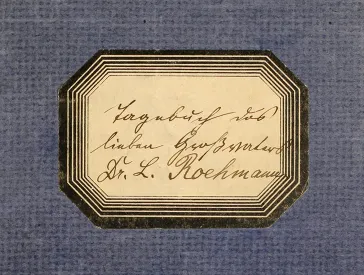 Tagebuch des
lieben Großvaters
Dr. L. Roehmann